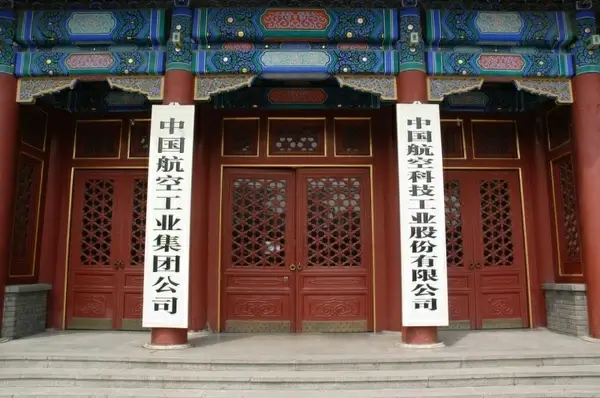 中国航空工业集团公司
中国航空科技工业股份有限公司